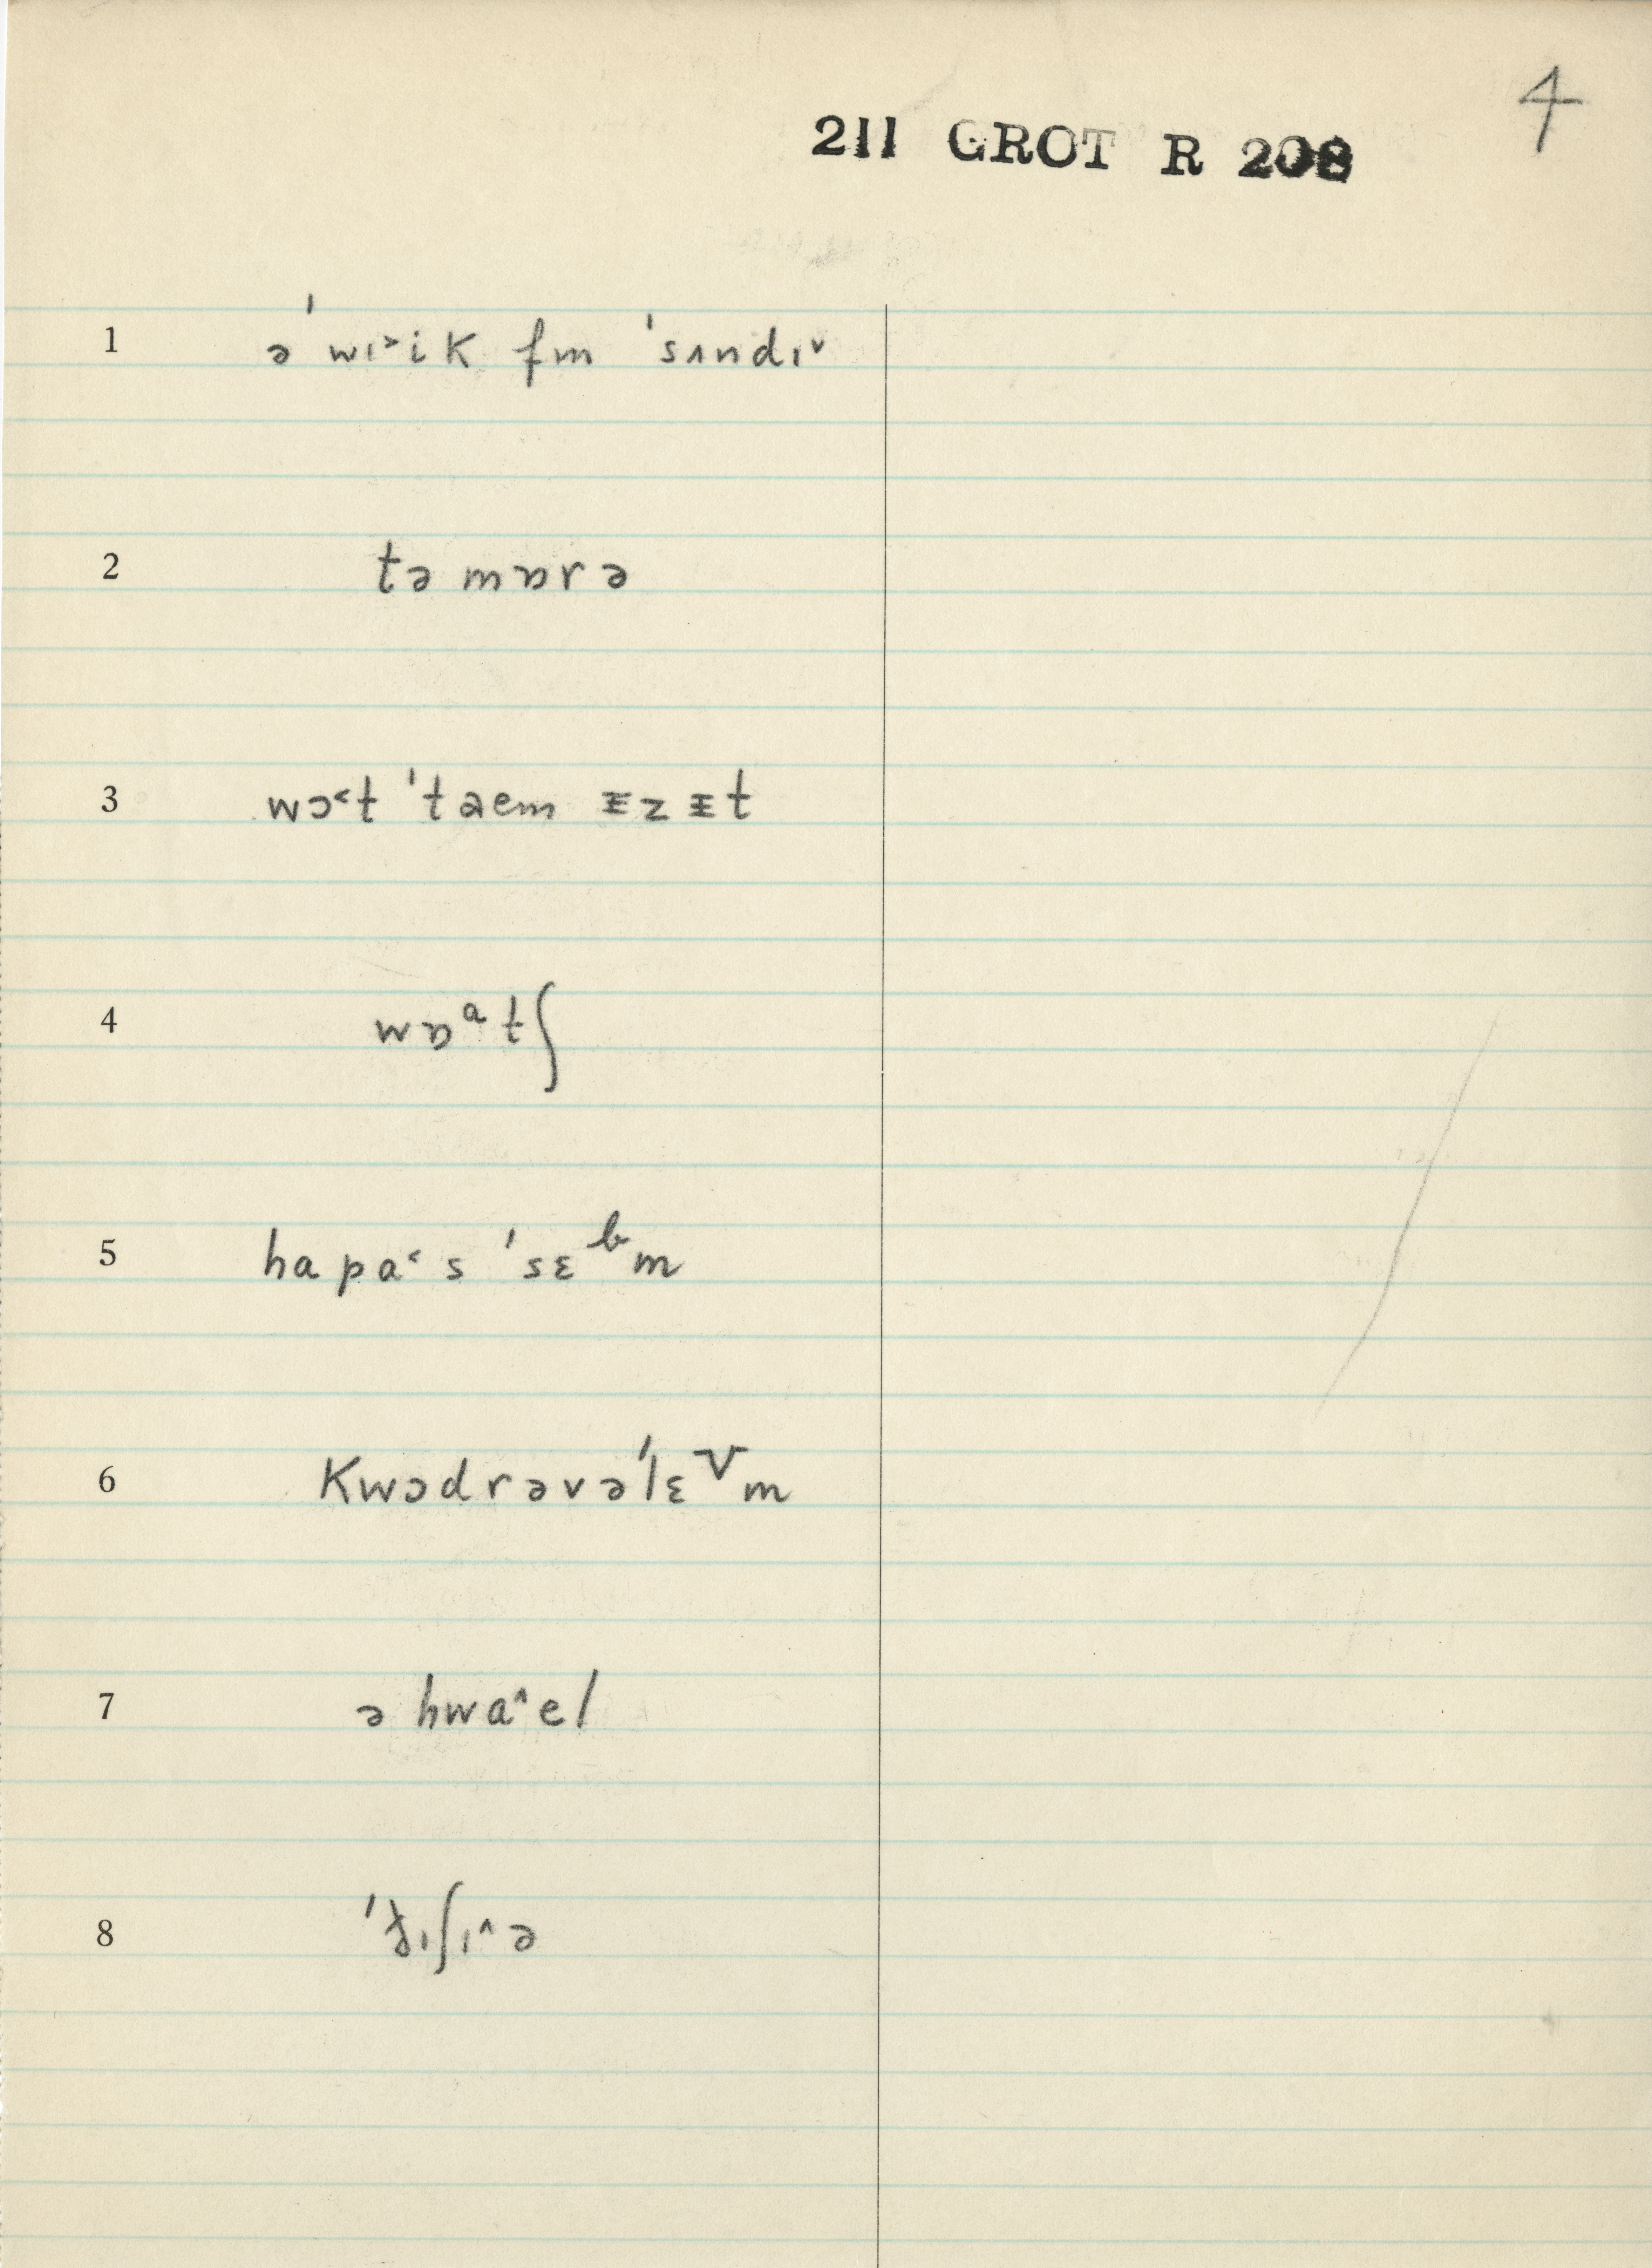 4
211 GROT R 208
1 ə ˈwɪ˃ik fm ˈsʌndɪ˅
2 təmɒrə
3 wɔ˂t ˈtaem ᵻzᵻt
4 wɒᵃtʃ
5 hapa˂s ˈsɛᵇm
6 Kwɔdrəvəˈlɛⱽm
7 ə hwa˄el
8 ˈɟɪʃɪ˄ə